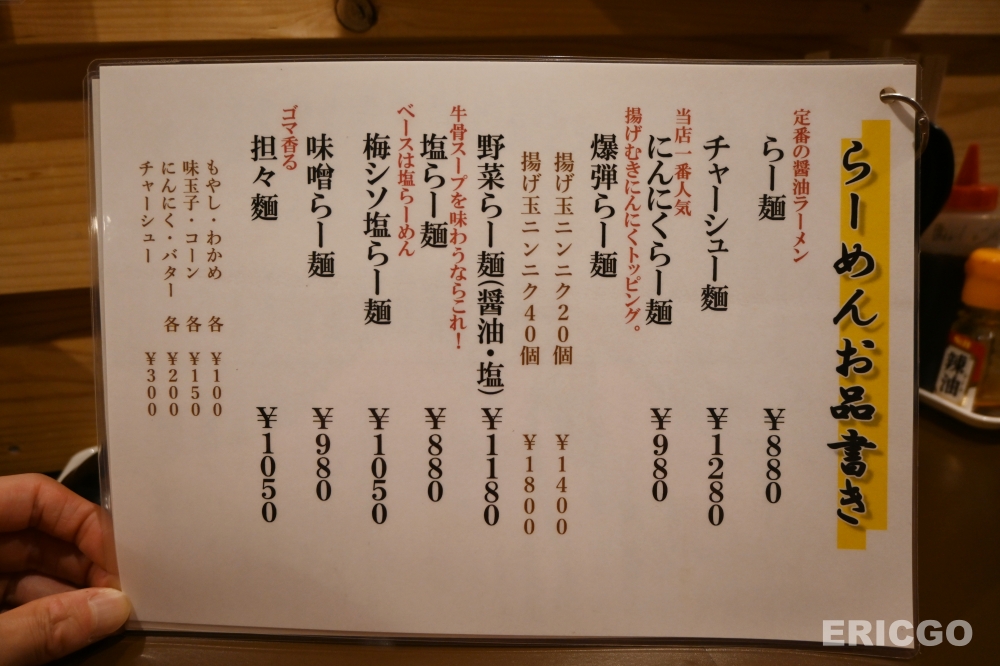 らーめんお品書き
定番の醤油ラーメン
らー麺 ¥880
チャーシュー麺 ¥1280
当店一番人気
にんにくらー麺 ¥980
揚げむきにんにくトッピング。
爆弾らー麺
揚げ玉ニンニク20個 ¥1400
揚げ玉ニンニク40個 ¥1800
野菜らー麺(醤油・塩) ¥1180
牛骨スープを味わうならこれ!
塩らー麺 ¥880
ベースは塩らーめん
梅シソ塩らー麺 ¥1050
味噌らー麺 ¥980
ゴマ香る
担々麺 ¥1050
もやし・わかめ 各 ¥100
味玉子・コーン 各 ¥150
にんにく・バター 各 ¥200
チャーシュー ¥300
辣油
ERICGO